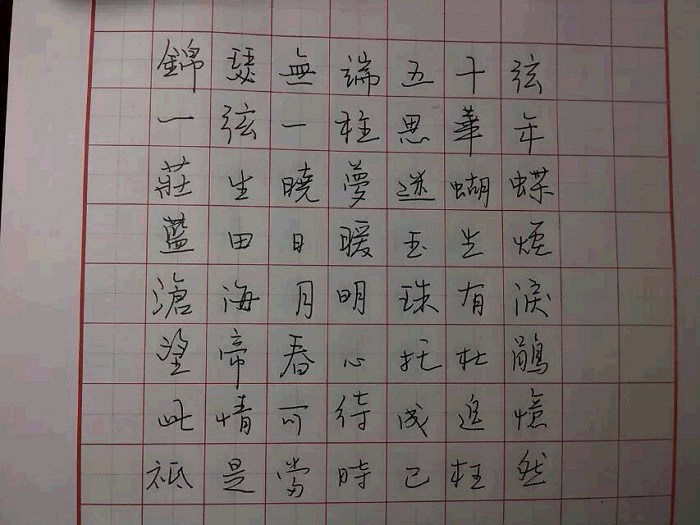 錦瑟無端五十弦
一弦一柱思華年
莊生曉夢迷蝴蝶
藍田日暖玉生煙
滄海月明珠有淚
望帝春心托杜鵑
此情可待成追憶
祗是當時已枉然